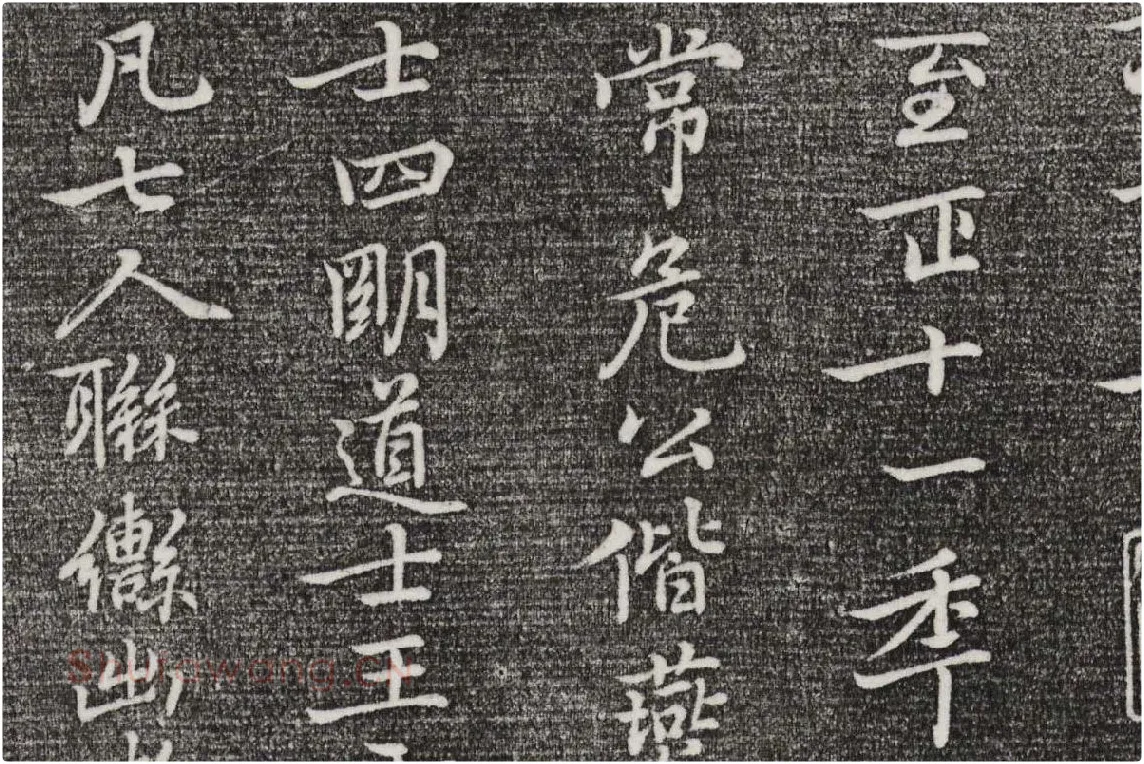 至正十一秊
常危公偕燕
士四朙道士王
凡七人聯轡出
Shufawang.CN